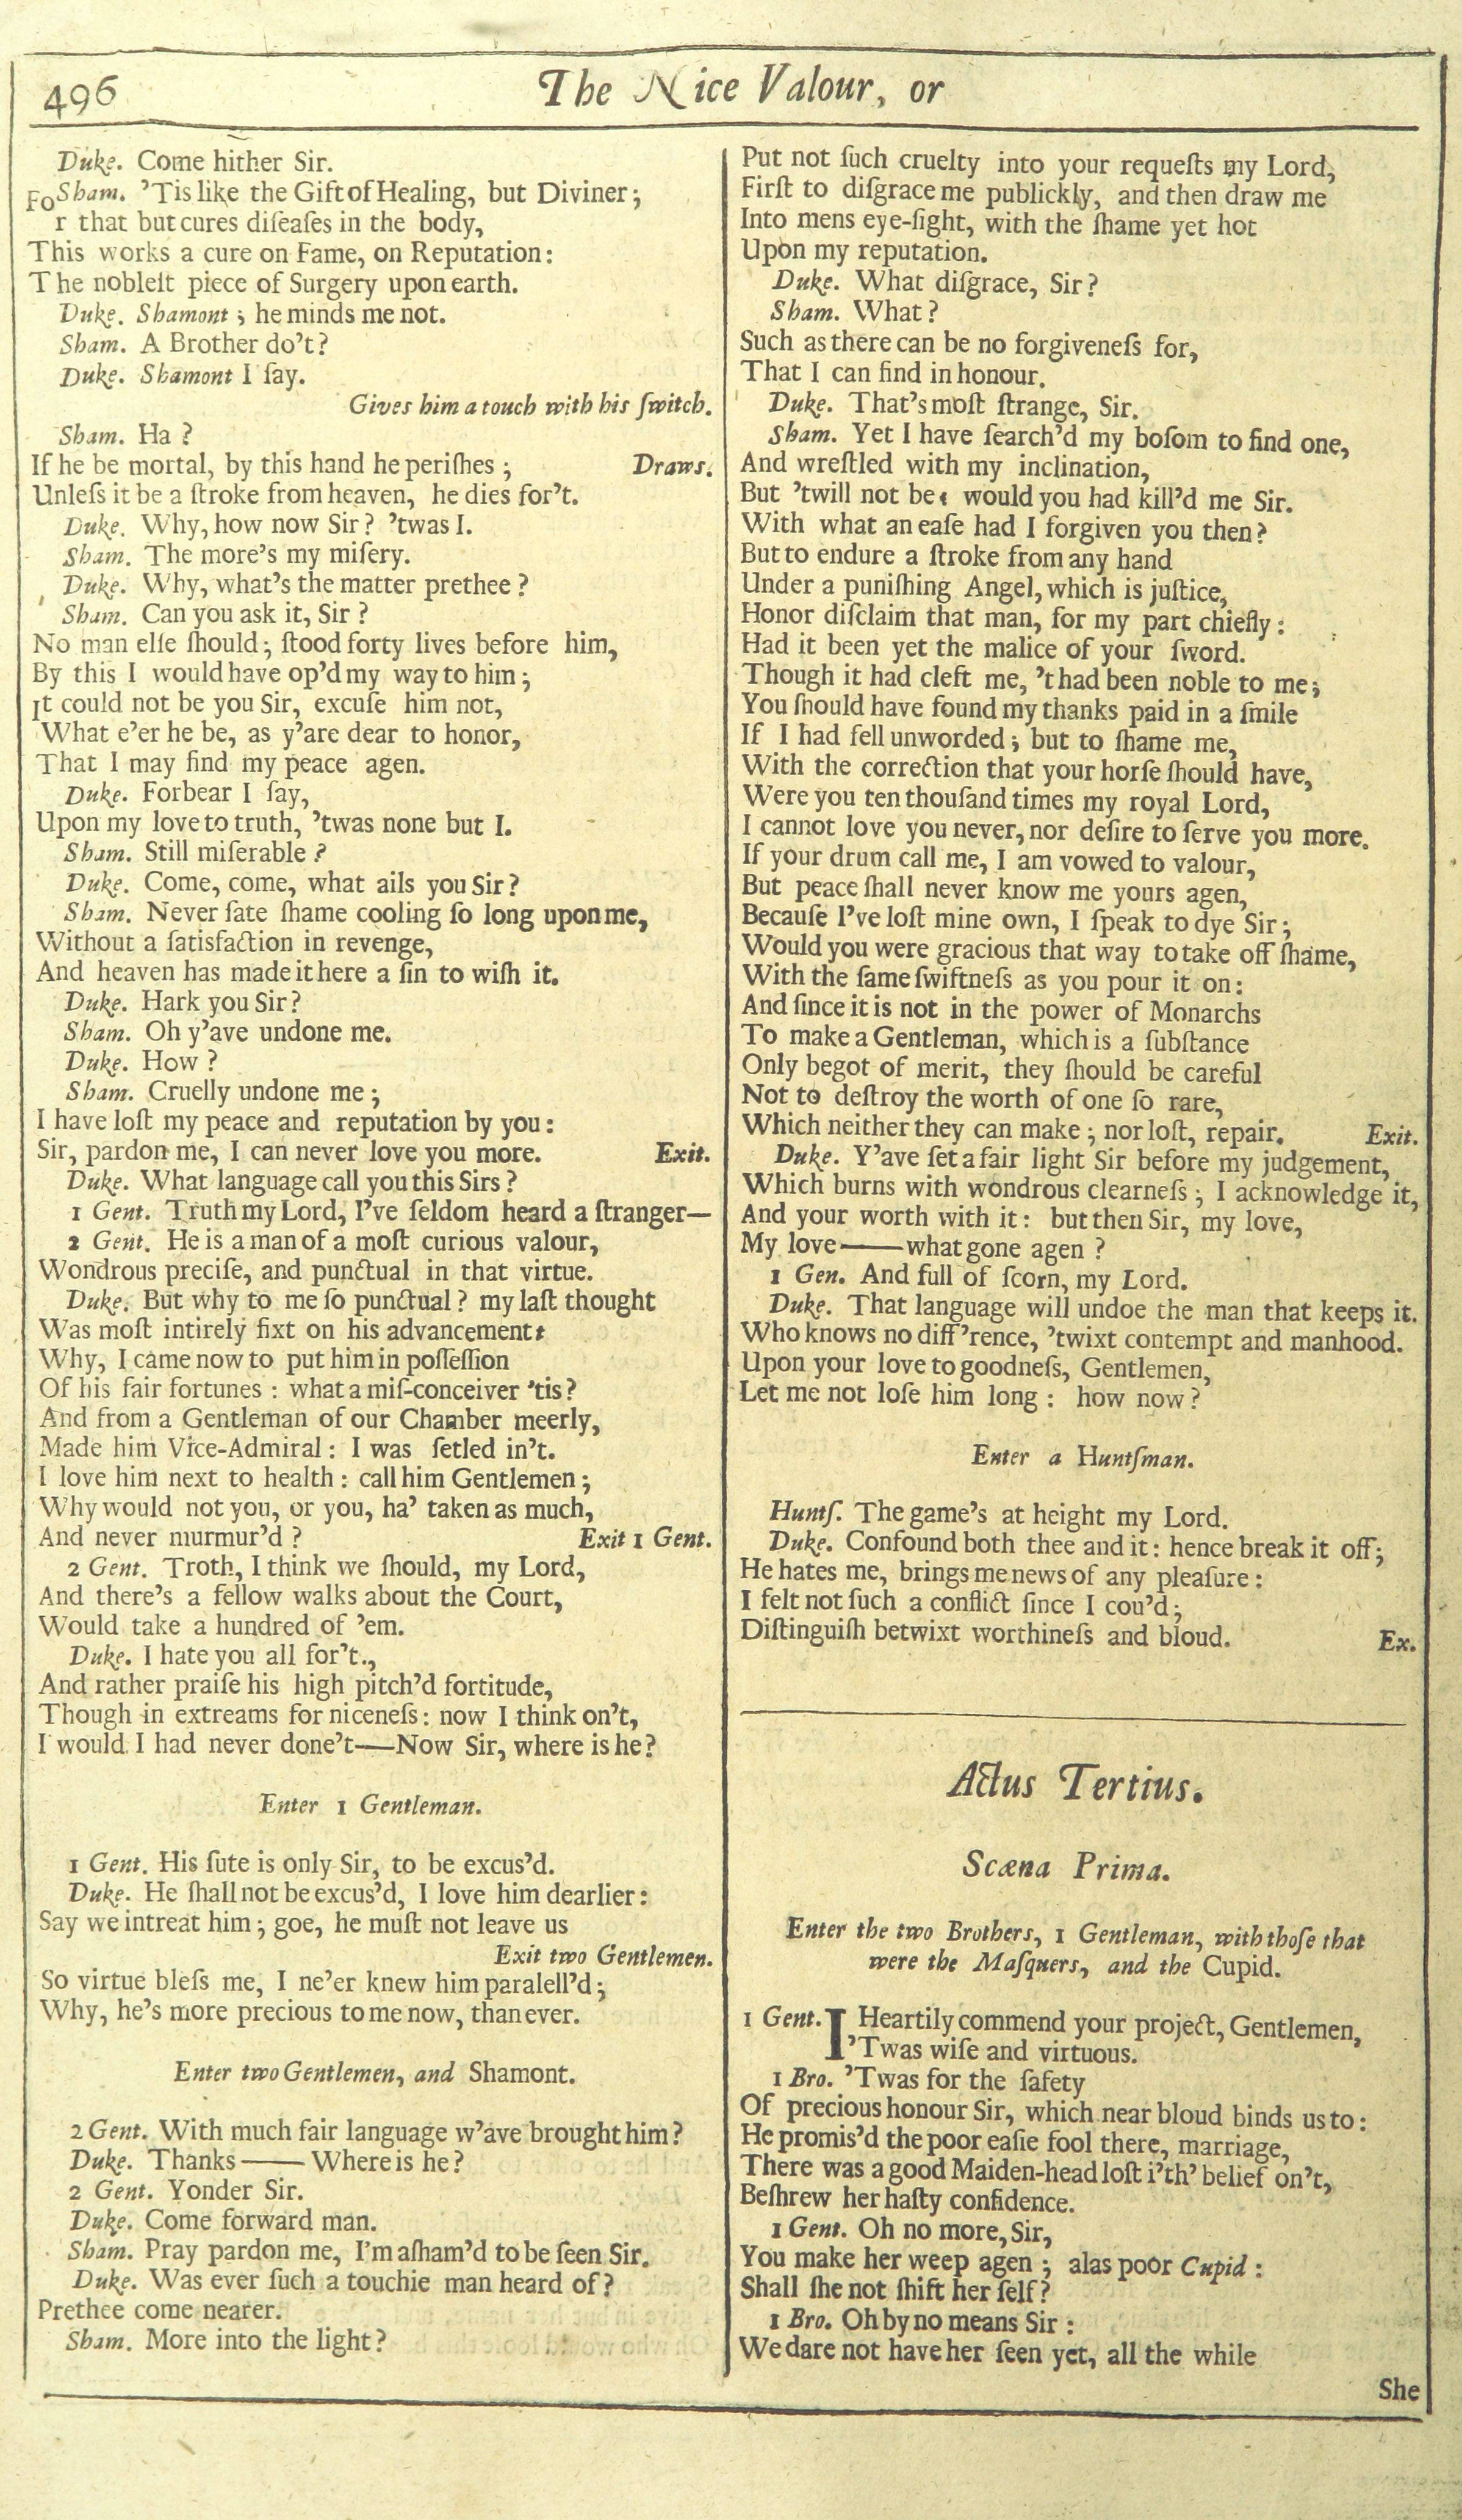 496
The Nice Valour, or
Duke. Come hither Sir.
FoSham. 'Tis like the Gift of Healing, but Diviner;
r that but cures diſeaſes in the body,
This works a cure on Fame, on Reputation:
The nobleſt piece of Surgery upon earth.
Duke. Shamont; he minds me not.
Sham. A Brother do't?
Duke. Shamont I ſay.
Gives him a touch with his ſwitch.
Sham. Ha?
If he be mortal, by this hand he periſhes; Draws.
Unleſs it be a ſtroke from heaven, he dies for't.
Duke. Why, how now Sir? 'twas I.
Sham. The more's my miſery.
Duke. Why, what's the matter prethee?
Sham. Can you ask it, Sir?
No man elſe ſhould; ſtood forty lives before him,
By this I would have op'd my way to him;
It could not be you Sir, excuſe him not,
What e'er he be, as y'are dear to honor,
That I may find my peace agen.
Duke. Forbear I ſay,
Upon my love to truth, 'twas none but I.
Sham. Still miſerable?
Duke. Come, come, what ails you Sir?
Sham. Never ſate ſhame cooling ſo long upon me,
Without a ſatisfaction in revenge,
And heaven has made it here a ſin to wiſh it.
Duke. Hark you Sir?
Sham. Oh y'ave undone me.
Duke. How?
Sham. Cruelly undone me;
I have loſt my peace and reputation by you:
Sir, pardon me, I can never love you more. Exit.
Duke. What language call you this Sirs?
1 Gent. Truth my Lord, I've ſeldom heard a ſtranger—
2 Gent. He is a man of a moſt curious valour,
Wondrous preciſe, and punctual in that virtue.
Duke. But why to me ſo punctual? my laſt thought
Was moſt intirely fixt on his advancement:
Why, I came now to put him in poſſeſſion
Of his fair fortunes: what a miſ-conceiver 'tis?
And from a Gentleman of our Chamber meerly,
Made him Vice-Admiral: I was ſetled in't.
I love him next to health: call him Gentlemen;
Why would not you, or you, ha' taken as much,
And never murmur'd? Exit 1 Gent.
2 Gent. Troth, I think we ſhould, my Lord,
And there's a fellow walks about the Court,
Would take a hundred of 'em.
Duke. I hate you all for't.,
And rather praiſe his high pitch'd fortitude,
Though in extreams for niceneſs: now I think on't,
I would I had never done't—Now Sir, where is he?
Enter 1 Gentleman.
1 Gent. His ſute is only Sir, to be excus'd.
Duke. He ſhall not be excus'd, I love him dearlier:
Say we intreat him; goe, he muſt not leave us
Exit two Gentlemen.
So virtue bleſs me, I ne'er knew him paralell'd;
Why, he's more precious to me now, than ever.
Enter two Gentlemen, and Shamont.
2 Gent. With much fair language w'ave brought him?
Duke. Thanks—— Where is he?
2 Gent. Yonder Sir.
Duke. Come forward man.
Sham. Pray pardon me, I'm aſham'd to be ſeen Sir.
Duke. Was ever ſuch a touchie man heard of?
Prethee come nearer.
Sham. More into the light?
Put not ſuch cruelty into your requeſts my Lord,
Firſt to diſgrace me publickly, and then draw me
Into mens eye-ſight, with the ſhame yet hot
Upon my reputation.
Duke. What diſgrace, Sir?
Sham. What?
Such as there can be no forgiveneſs for,
That I can find in honour.
Duke. That's moſt ſtrange, Sir.
Sham. Yet I have ſearch'd my boſom to find one,
And wreſtled with my inclination,
But 'twill not be: would you had kill'd me Sir.
With what an eaſe had I forgiven you then?
But to endure a ſtroke from any hand
Under a puniſhing Angel, which is juſtice,
Honor diſclaim that man, for my part chiefly:
Had it been yet the malice of your ſword.
Though it had cleft me, 't had been noble to me;
You ſhould have found my thanks paid in a ſmile
If I had fell unworded; but to ſhame me,
With the correction that your horſe ſhould have,
Were you ten thouſand times my royal Lord,
I cannot love you never, nor deſire to ſerve you more.
If your drum call me, I am vowed to valour,
But peace ſhall never know me yours agen,
Becauſe I've loſt mine own, I ſpeak to dye Sir;
Would you were gracious that way to take off ſhame,
With the ſame ſwiftneſs as you pour it on:
And ſince it is not in the power of Monarchs
To make a Gentleman, which is a ſubſtance
Only begot of merit, they ſhould be careful
Not to deſtroy the worth of one ſo rare,
Which neither they can make; nor loſt, repair. Exit.
Duke. Y'ave ſet a fair light Sir before my judgement,
Which burns with wondrous clearneſs; I acknowledge it,
And your worth with it: but then Sir, my love,
My love——what gone agen?
1 Gen. And full of ſcorn, my Lord.
Duke. That language will undoe the man that keeps it.
Who knows no diff'rence, 'twixt contempt and manhood.
Upon your love to goodneſs, Gentlemen,
Let me not loſe him long: how now?
Enter a Huntſman.
Huntſ. The game's at height my Lord.
Duke. Confound both thee and it: hence break it off;
He hates me, brings me news of any pleaſure:
I felt not ſuch a conflict ſince I cou'd;
Diſtinguiſh betwixt worthineſs and bloud. Ex.
Actus Tertius.
Scæna Prima.
Enter the two Brothers, 1 Gentleman, with thoſe that
were the Maſquers, and the Cupid.
1 Gent. I Heartily commend your project, Gentlemen,
'Twas wiſe and virtuous.
1 Bro. 'Twas for the ſafety
Of precious honour Sir, which near bloud binds us to:
He promis'd the poor eaſie fool there, marriage,
There was a good Maiden-head loſt i'th' belief on't,
Beſhrew her haſty confidence.
1 Gent. Oh no more, Sir,
You make her weep agen; alas poor Cupid:
Shall ſhe not ſhift her ſelf?
1 Bro. Oh by no means Sir:
We dare not have her ſeen yet, all the while
She